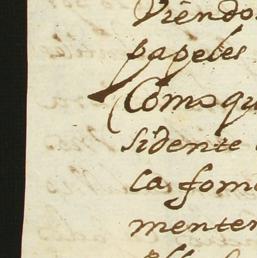 Viendo
papeles
Como qu
sidente
la fom
menten